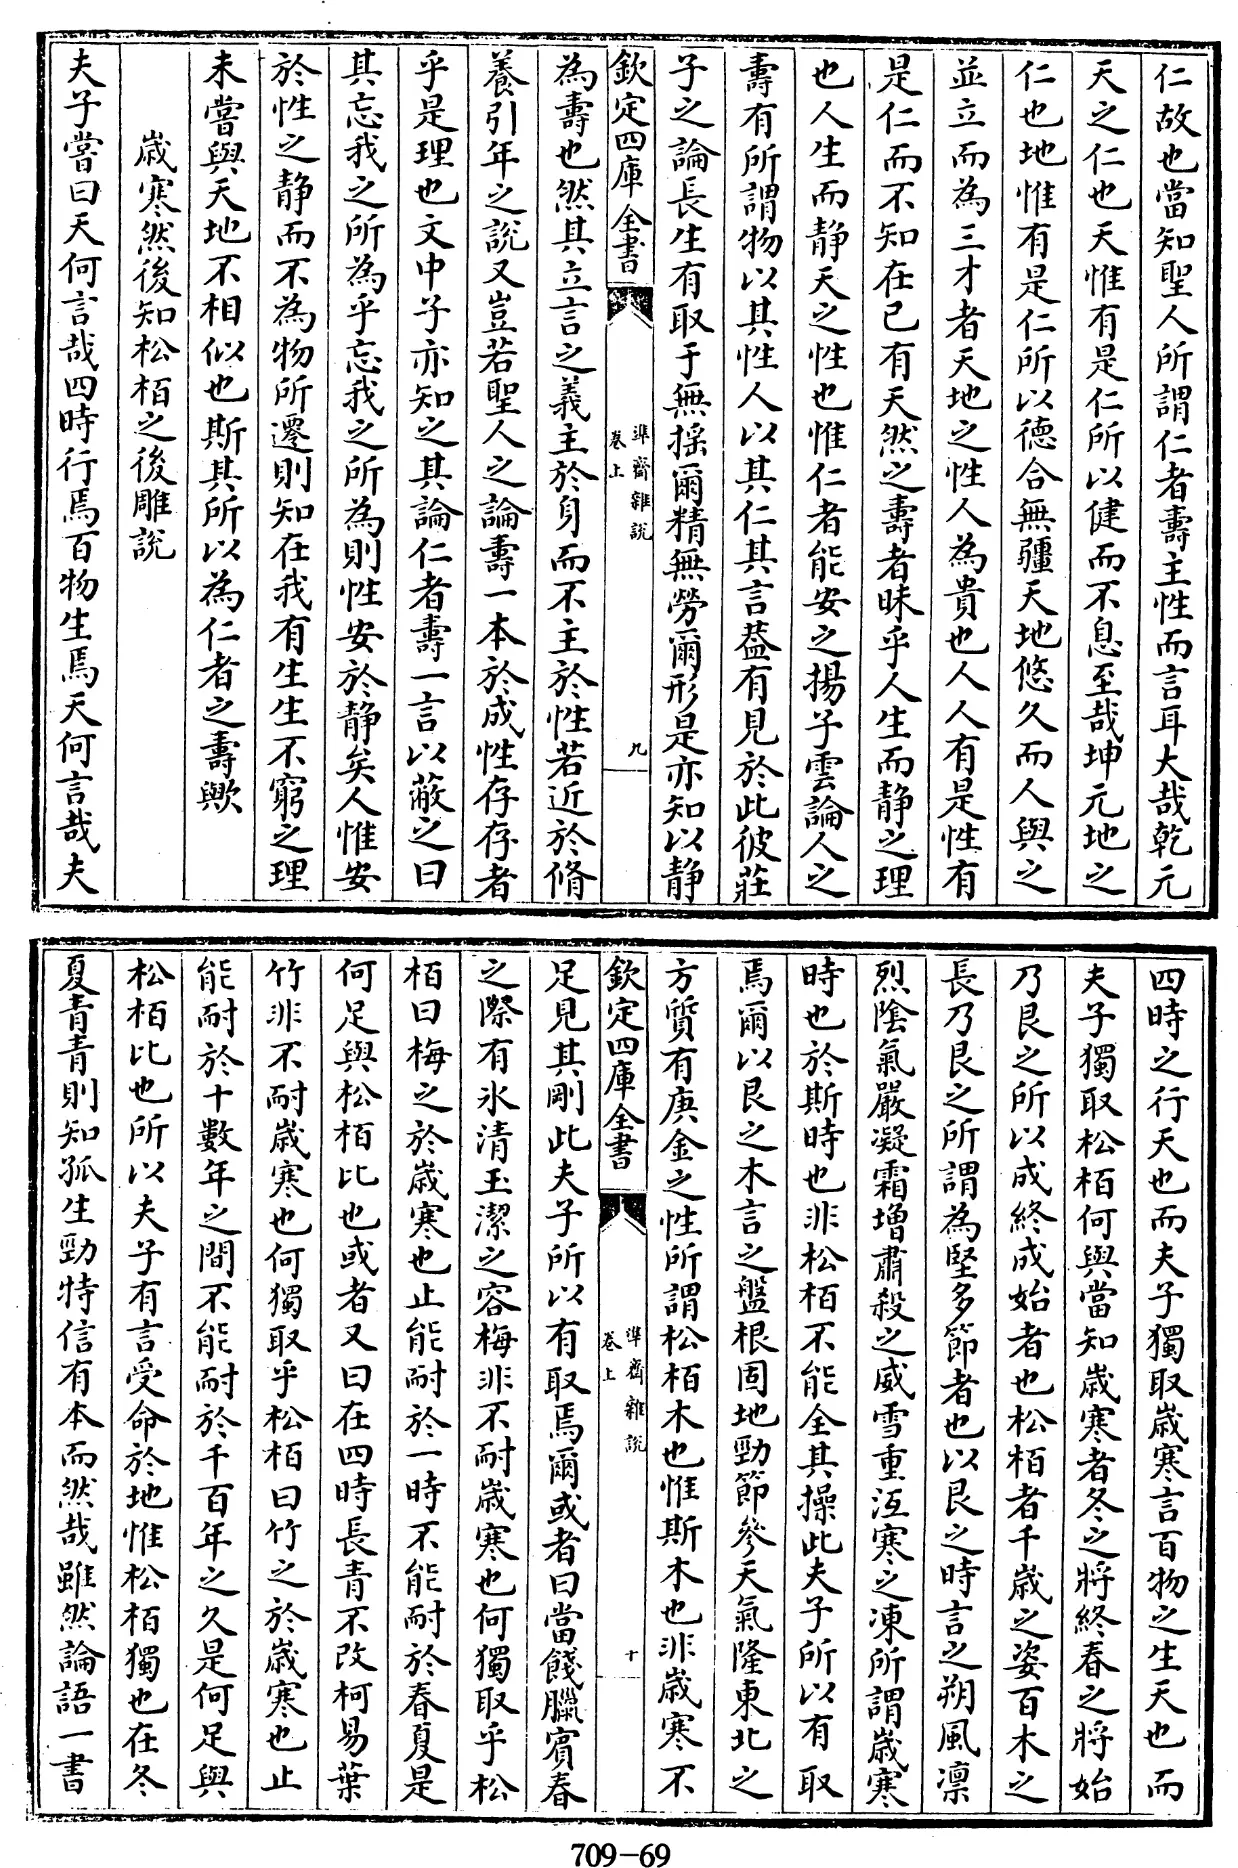 仁故也當知聖人所謂仁者壽主性而言耳大哉乾元
天之仁也天惟有是仁所以健而不息至哉坤元地之
仁也地惟有是仁所以德合無疆天地悠久而人與之
並立而為三才者天地之性人為貴也人人有是性有
是仁而不知在已有天然之壽者昧乎人生而静之理
也人生而静天之性也惟仁者能安之揚子雲論人之
壽有所謂物以其性人以其仁其言葢有見於此彼莊
子之論長生有取于無揺爾精無勞爾形是亦知以静
欽定四庫全書
準齋雜説
卷上
九
為壽也然其立言之義主於身而不主於性若近於脩
養引年之說又豈若聖人之論壽一本於成性存存者
乎是理也文中子亦知之其論仁者壽一言以蔽之曰
其忘我之所為乎忘我之所為則性安於静矣人惟安
於性之静而不為物所遷則知在我有生生不窮之理
未嘗與天地不相似也斯其所以為仁者之壽歟
歲寒然後知松栢之後雕說
夫子嘗曰天何言哉四時行焉百物生焉天何言哉夫
四時之行天也而夫子獨取歲寒言百物之生天也而
夫子獨取松栢何與當知歲寒者冬之將終春之將始
乃艮之所以成終成始者也松栢者千歲之姿百木之
長乃艮之所謂為堅多節者也以艮之時言之朔風凛
烈陰氣嚴凝霜増肅殺之威雪重沍寒之凍所謂歲寒
時也於斯時也非松栢不能全其操此夫子所以有取
焉爾以艮之木言之盤根固地勁節參天氣隆東北之
方質有庚金之性所謂松栢木也惟斯木也非歲寒不
欽定四庫全書
準齋雜説
卷上
十
足見其剛此夫子所以有取焉爾或者曰當餞臘賓春
之際有氷清玉潔之容梅非不耐歲寒也何獨取乎松
栢曰梅之於歲寒也止能耐於一時不能耐於春夏是
何足與松栢比也或者又曰在四時長青不改柯易葉
竹非不耐歲寒也何獨取乎松栢曰竹之於歲寒也止
能耐於十數年之間不能耐於千百年之久是何足與
松栢比也所以夫子有言受命於地惟松栢獨也在冬
夏青青則知孤生勁特信有本而然哉雖然論語一書
709-69